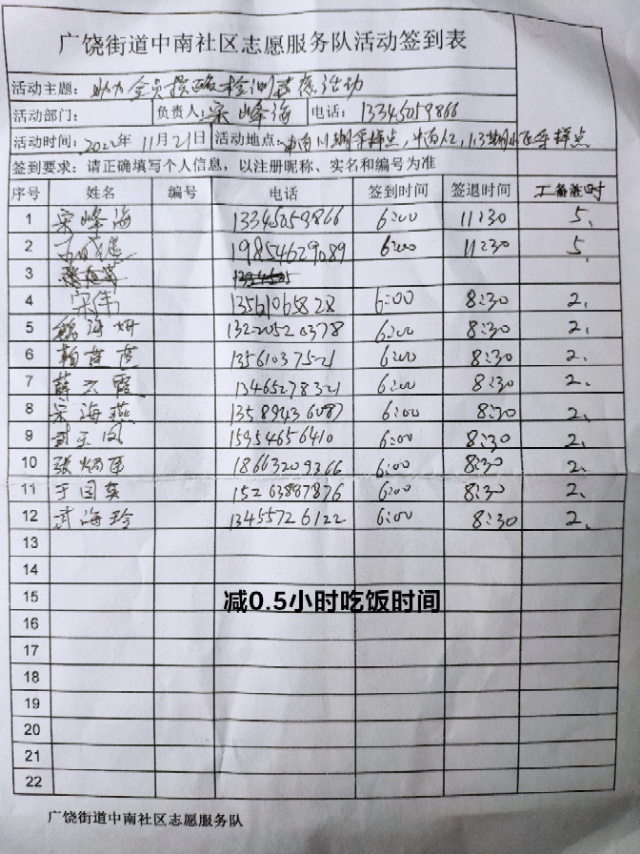 广饶街道中南社区志愿服务队活动签到表
活动主题：助力全员核酸检测志愿活动
活动部门： 负责人：宋峰海 电话：13345059866
活动时间：2022年11月21日 活动地点：中南
签到要求：请正确填写个人信息，以注册昵称、实名和编号为准
序号 姓名 编号 电话 签到时间 签退时间
1 宋峰海 13345059866 6:00 11:30 5
2 19854629089 6:00 11:30 5
3
4 宋伟 13561065828 6:00 8:30 2
5 海妍 13220520378 6:00 8:30 2
6 13561037521 6:00 8:30 2
7 薛云霞 13465278321 6:00 8:30 2
8 宋海燕 13589436087 6:00 8:30 2
9 15954656410 6:00 8:30 2
10 张炳 18663209366 6:00 8:30 2
11 于国英 15263887876 6:00 8:30 2
12 武海玲 13455726122 6:00 8:30 2
13
14
15 减0.5小时吃饭时间
16
17
18
19
20
21
22
广饶街道中南社区志愿服务队